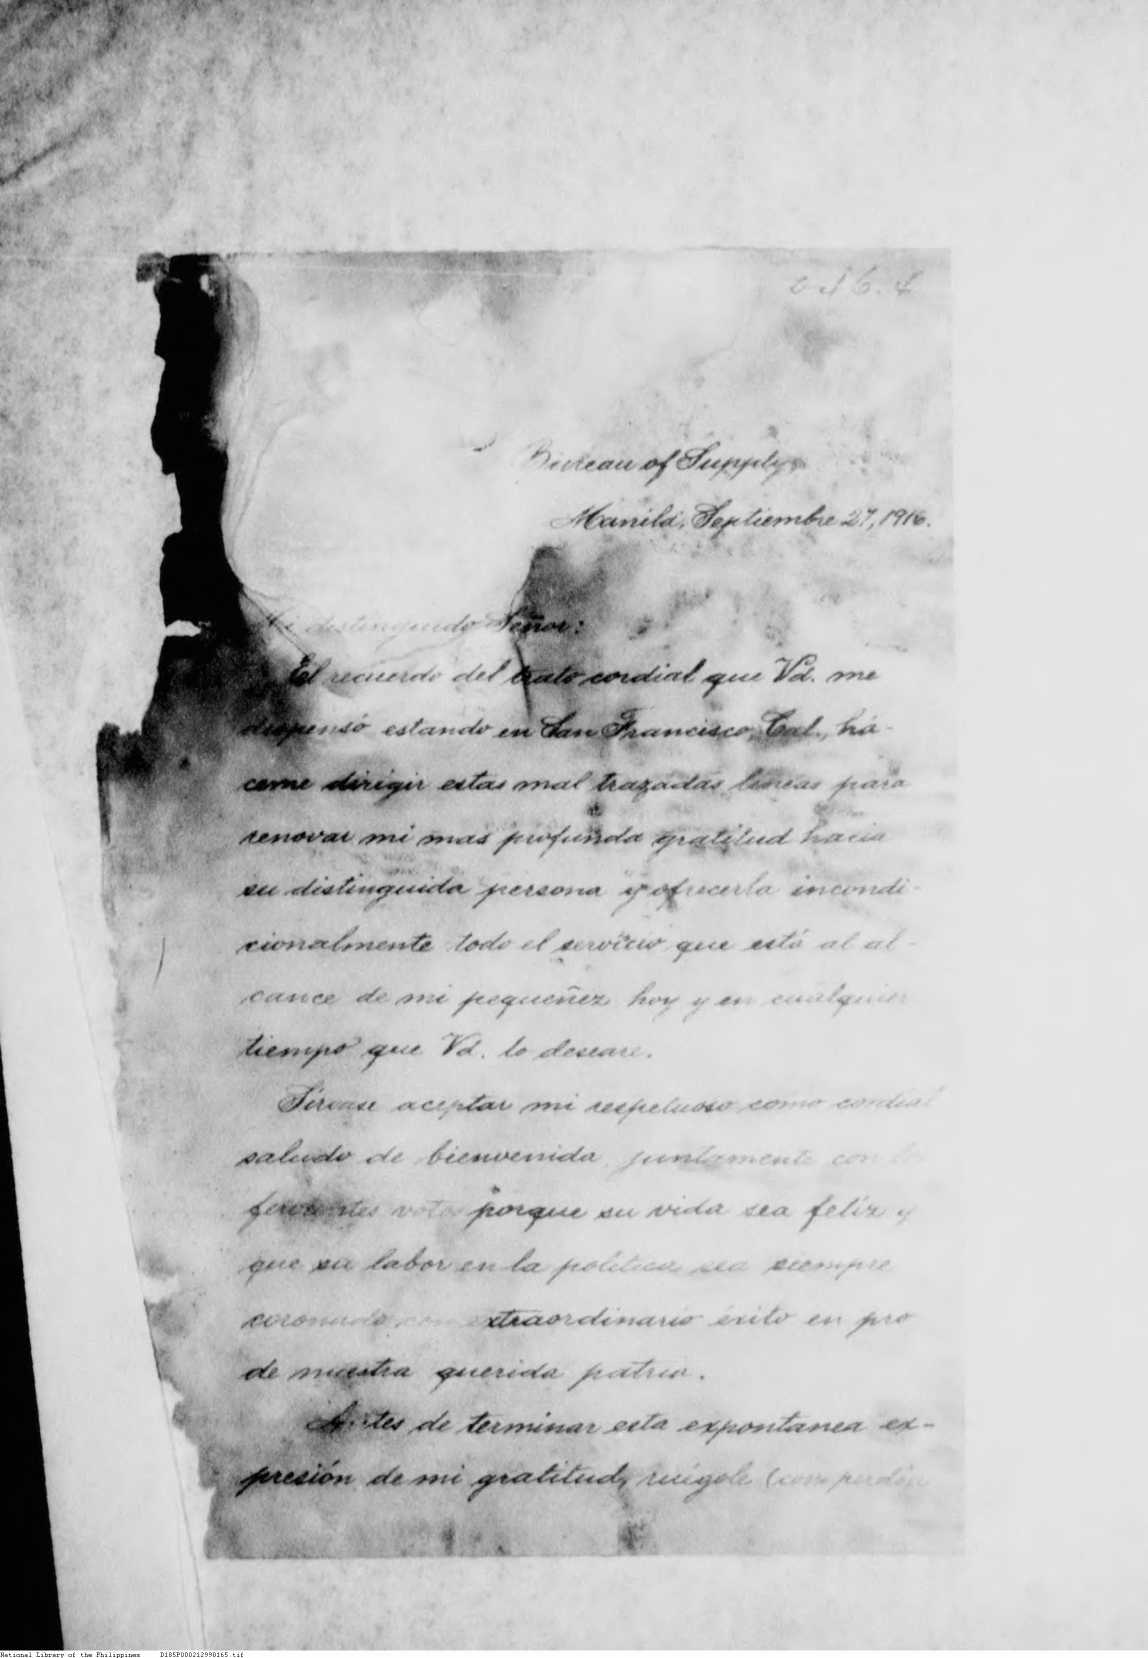 Bureau of Supply,
Manila, Septiembre 27, 1916.
Mi distinguido Señor:
El recuerdo del trato cordial que Vd. me
dispensó estando en San Francisco, Cal., há-
ceme dirigir estas mal trazadas lineas para
renovar mi mas profunda gratitud hacia
su distinguida persona y ofrecerla incondi-
cionalmente todo el servicio que está al al-
cance de mi pequeñez hoy y en cualquier
tiempo que Vd. lo deseare.
Sírvase aceptar mi respetuoso como cordial
saludo de bienvenida, juntamente con
fervientes votos porque su vida sea felíz y
que su labor en la politica sea siempre
coronado con extraordinario éxito en pro
de nuestra querida patria.
Antes de terminar esta expontanea ex-
presión de mi gratitud, ruégole (con perdón
National Library of the Philippines D185P000212998165.tif